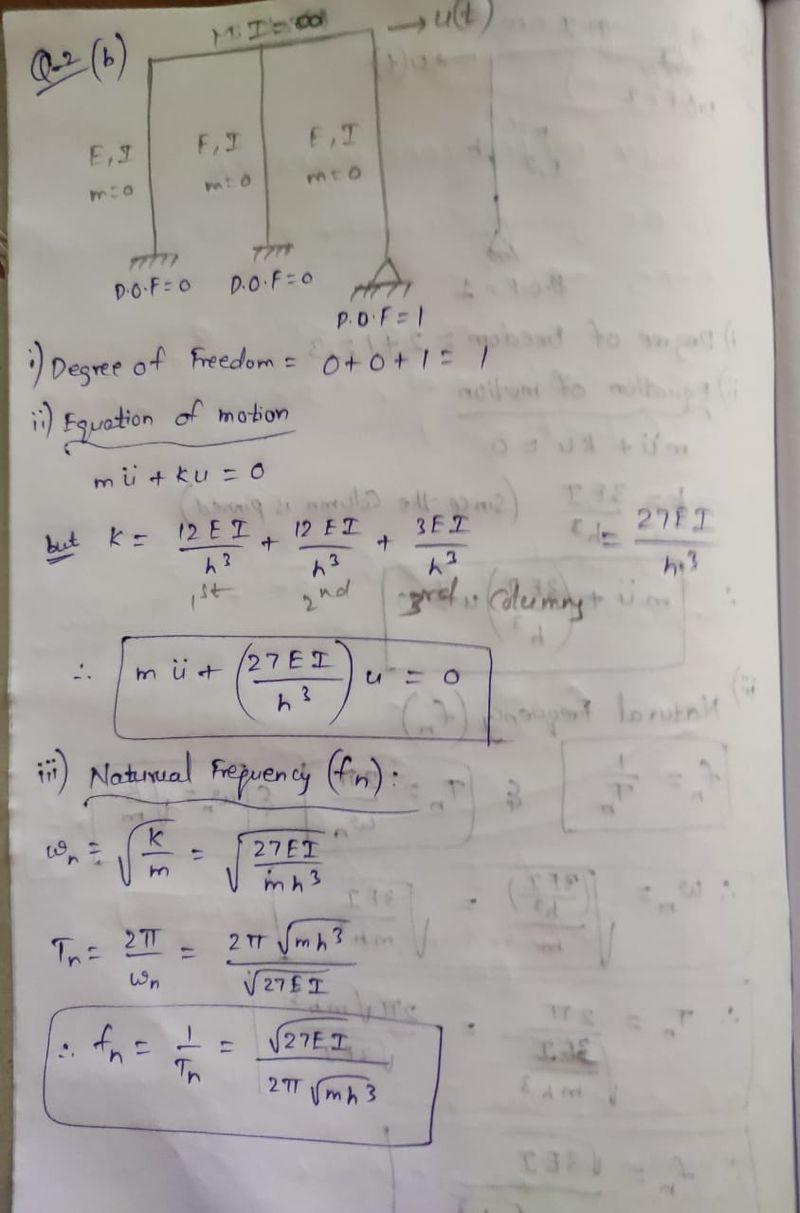 Q-2 (b)
M. I = ∞ → u(t)
E, I E, I E, I
m=0 m=0 m=0
D.O.F=0 D.O.F=0
D.O.F=1
i) Degree of Freedom = 0+0+1 = 1
ii) Equation of motion
mü + ku = 0
but k = 12EI/h³ + 12EI/h³ + 3EI/h³ = 27EI/h³
1st 2nd 3rd columns
∴ mü + (27EI/h³) u = 0
iii) Natural Frequency (fn):
ωn = √(k/m) = √(27EI/mh³)
Tn = 2π/ωn = 2π√mh³/√27EI
∴ fn = 1/Tn = √27EI/2π√mh³